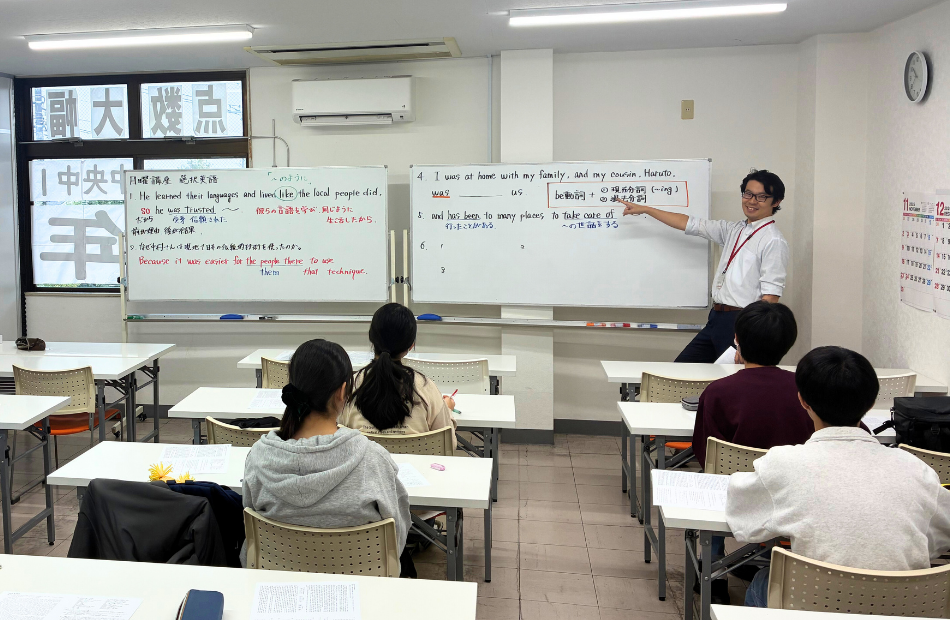 月曜講座 選択英語
1. He learned their languages and lived like the local people did,
「~のように」
so he was trusted ~
彼らの言語を学び、同じように
生活したから。
だから
今季 信頼された。
前が理由 後が結果
Because it was easier for the people there to use
them
that technique.
4. I was at home with my family, and my cousin, Haruto,
was ____ us
be動詞 + ① 現在分詞 (~ing)
② 過去分詞
5. and has been to many places to take care of
行ったことがある
~の世話をする
6.
点数大幅
中央中1
年
11
12